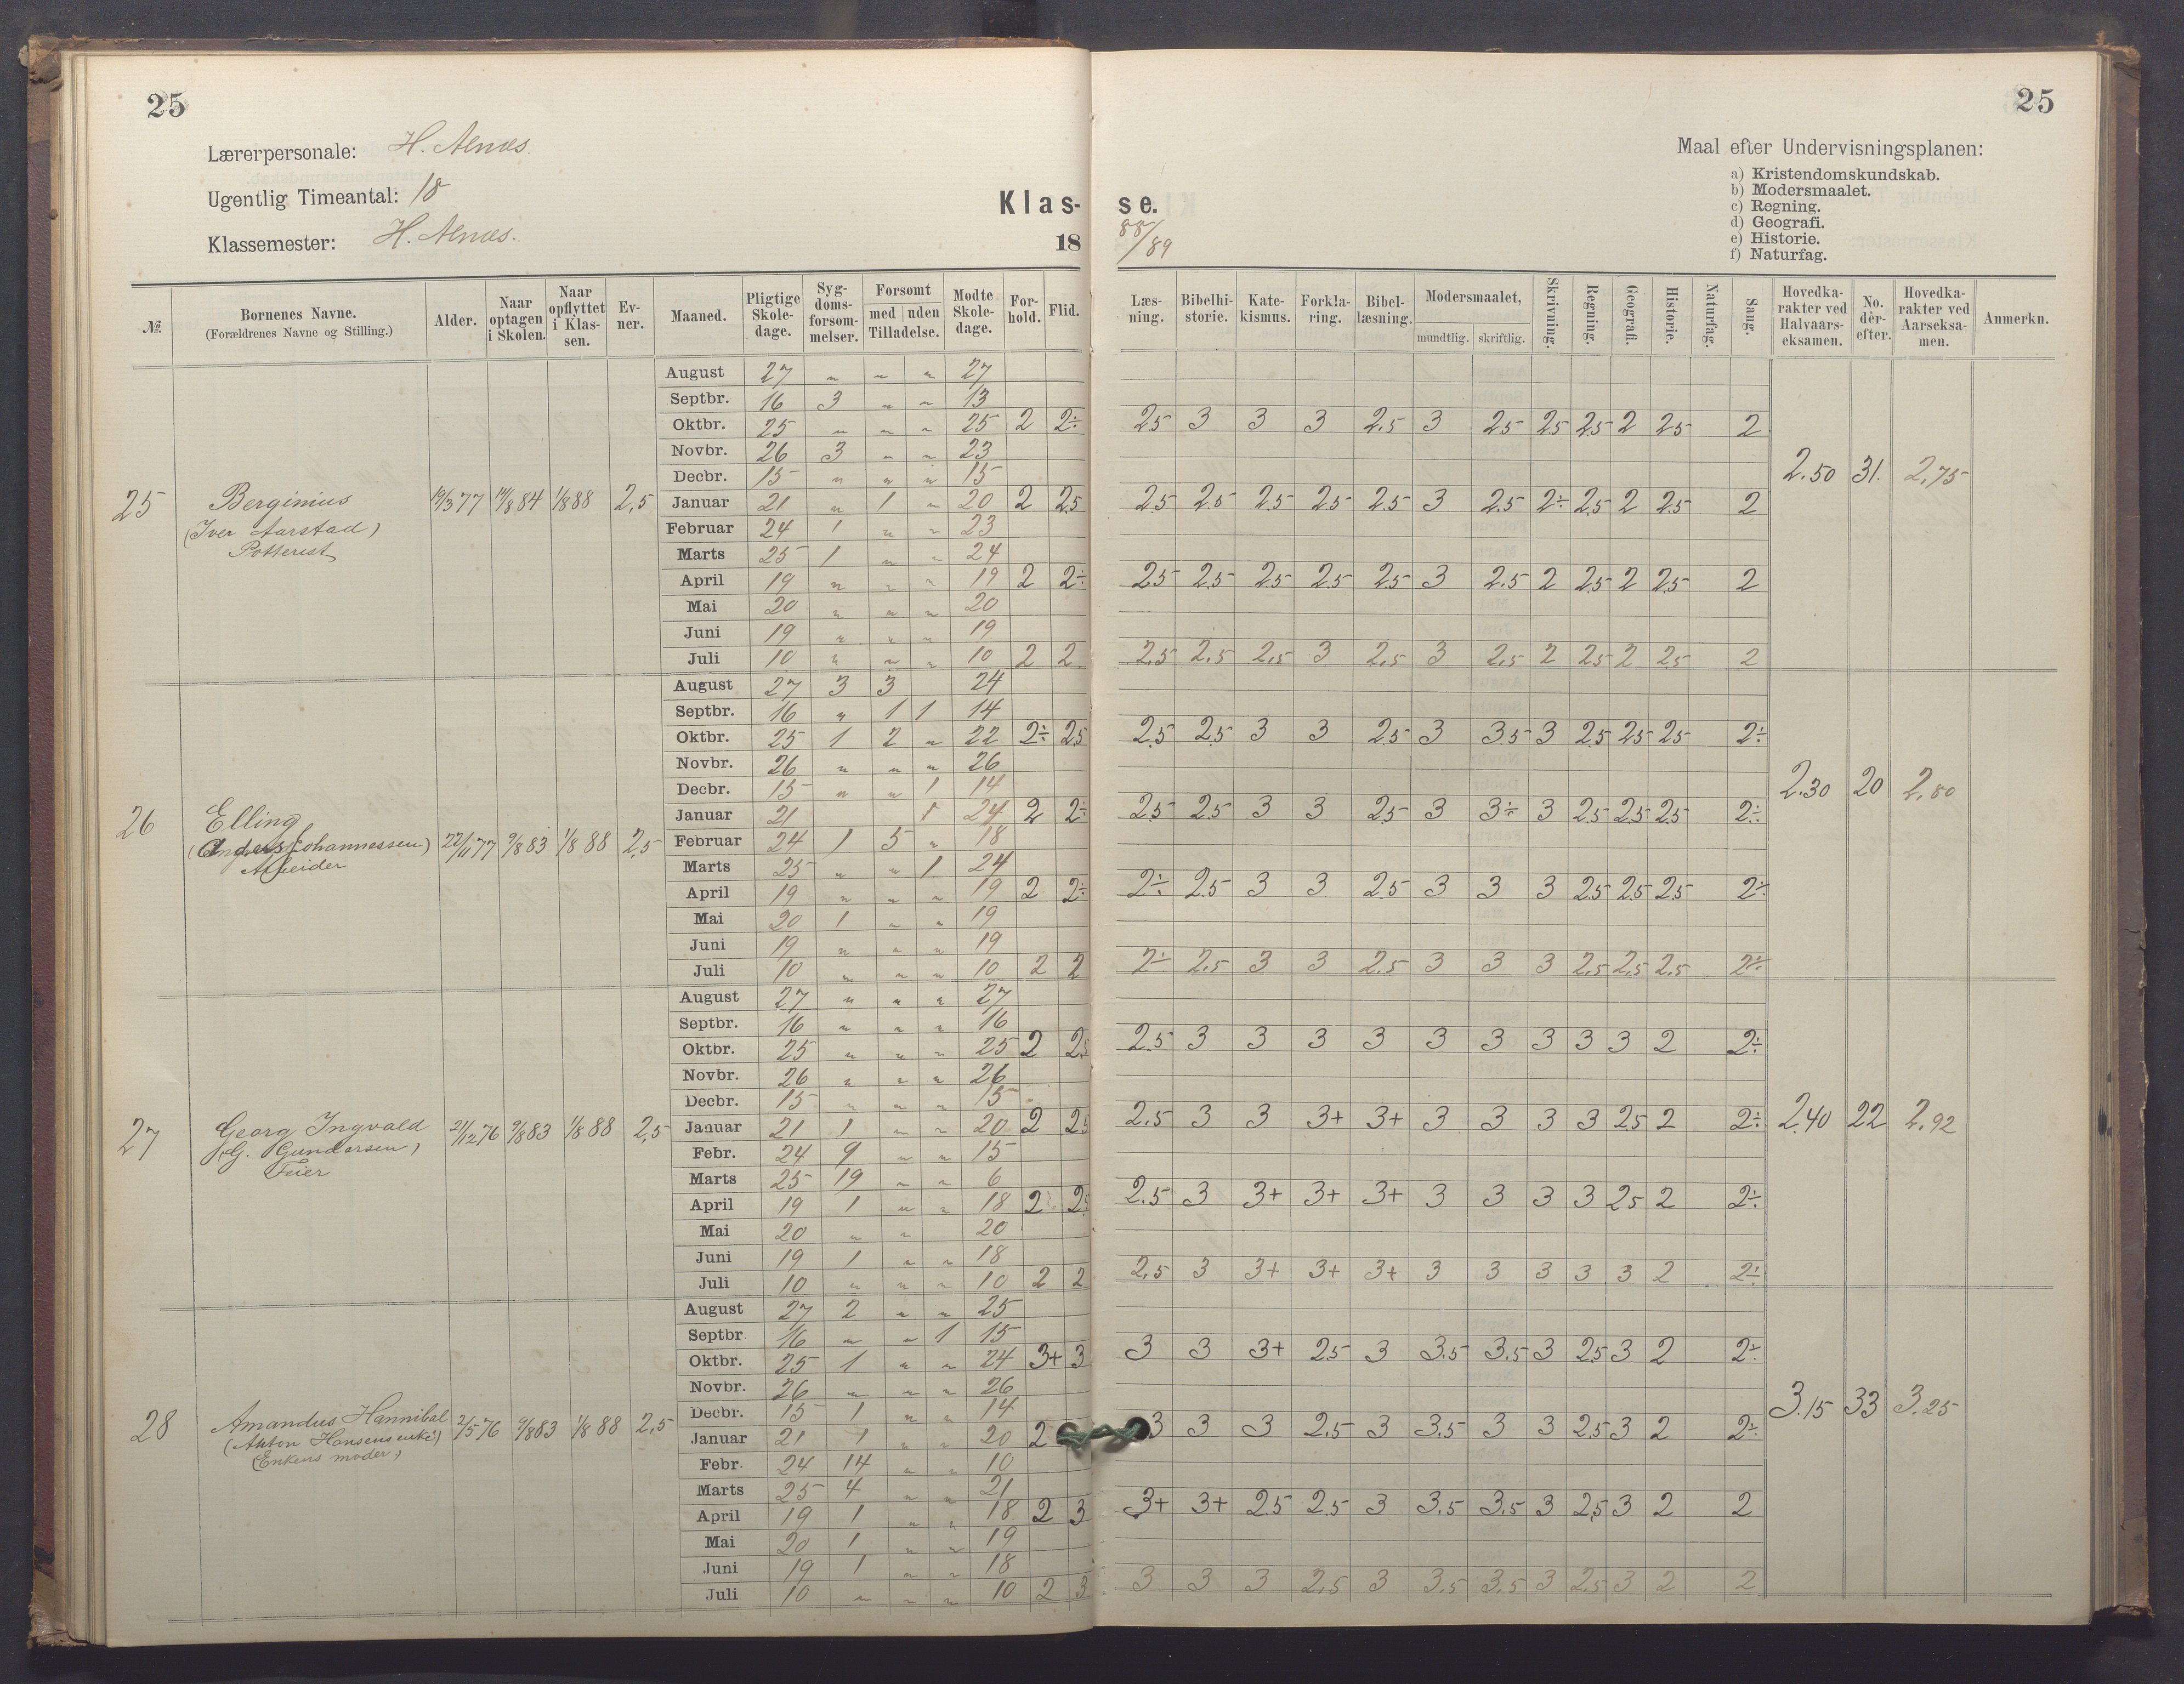 25
25
Lærerpersonale: H. Alnæs.
Ugentlig Timeantal: 18
Klassemester: H. Alnæs.
Klas- se.
18 88/89
Maal efter Undervisningsplanen:
a) Kristendomskundskab.
b) Modersmaalet.
c) Regning.
d) Geografi.
e) Historie.
f) Naturfag.
№. Bornenes Navne. (Forældrenes Navne og Stilling.) Alder. Naar optagen i Skolen. Naar opflyttet i Klassen. Evner. Maaned. Pligtige Skoledage. Sygdomsforsommelser. Forsomt med uden Tilladelse. Modte Skoledage. Forhold. Flid. Læsning. Bibelhistorie. Katekismus. Forklaring. Bibellæsning. Modersmaalet, mundtlig. skriftlig. Skrivning. Regning. Geografi. Historie. Naturfag. Sang. Hovedkarakter ved Halvaarseksamen. No. derefter. Hovedkarakter ved Aarseksamen. Anmerkn.
25 Berginius (Iver Aarstad) Potterist 19/3 77 14/8 84 1/8 88 2,5 2.50 31. 2,75
August 27 " " " 27
Septbr. 16 3 " " 13
Oktbr. 25 " " " 25 2 2÷ 25 3 3 3 2.5 3 25 25 25 2 25 2
Novbr. 26 3 " " 23
Decbr. 15 " " " 15
Januar 21 " 1 " 20 2 25 25 25 25 25 25 3 25 2÷ 25 2 25 2
Februar 24 1 " " 23
Marts 25 1 " " 24
April 19 " " " 19 2 2÷ 25 25 25 25 25 3 2.5 2 25 2 25 2
Mai 20 " " " 20
Juni 19 " " " 19
Juli 10 " " " 10 2 2 2.5 2,5 2,5 3 2,5 3 2,5 2 25 2 2,5 2
26 Elling (Anders Johannessen) Arbeider 22/11 77 9/8 83 1/8 88 2,5 2.30 20 2,80
August 27 3 3 24
Septbr. 16 " 1 1 14
Oktbr. 25 1 2 " 22 2÷ 25 25 25 3 3 25 3 3.5 3 25 25 25 2÷
Novbr. 26 " " " 26
Decbr. 15 " " 1 14
Januar 21 1 24 2 2÷ 25 25 3 3 25 3 3÷ 3 25 25 25 2÷
Februar 24 1 5 " 18
Marts 25 " " 1 24
April 19 " " " 19 2 2÷ 2÷ 25 3 3 25 3 3 3 25 25 25 2÷
Mai 20 1 " " 19
Juni 19 " " " 19
Juli 10 " " " 10 2 2 2÷ 2,5 3 3 2.5 3 3 3 2,5 2,5 2,5 2÷
27 Georg Ingvald (G. Gundersen) Feier 21/12 76 9/8 83 1/8 88 2,5 2.40 22 2,92
August 27 " " " 27
Septbr. 16 " " " 16
Oktbr. 25 " " " 25 2 25 2.5 3 3 3 3 3 3 3 3 3 2 2÷
Novbr. 26 " " " 26
Decbr. 15 " " " 15
Januar 21 1 " " 20 2 25 2.5 3 3 3+ 3+ 3 3 3 3 25 2 2÷
Febr. 24 9 " " 15
Marts 25 19 " " 6
April 19 1 " " 18 2 25 2.5 3 3+ 3+ 3+ 3 3 3 3 25 2 2÷
Mai 20 " " 20
Juni 19 1 " " 18
Juli 10 " " " 10 2 2 2,5 3 3+ 3+ 3+ 3 3 3 3 3 2 2÷
28 Amandus Hannibal (Anton Hansens enke) (Enkens moder) 2/5 76 9/8 83 1/8 88 2,5 3.15 33 3.25
August 27 2 " " 25
Septbr 16 " " 1 15
Oktbr. 25 1 " " 24 3+ 3 3 3 3+ 25 3 3.5 3.5 3 25 3 2 2÷
Novbr. 26 " " " 26
Decbr. 15 1 " " 14
Januar 21 1 " " 20 2 3 3 3 2.5 3 3.5 3 3 2.5 3 2 2÷
Febr. 24 14 " " 10
Marts 25 4 " " 21
April 19 1 " " 18 2 3 3+ 3+ 25 2.5 3 3.5 3.5 3 2,5 3 2 2
Mai 20 1 " " 19
Juni 19 1 " " 18
Juli 10 " " " 10 2 3 3 3 3 2,5 3 3,5 3,5 3 2,5 3 2 2